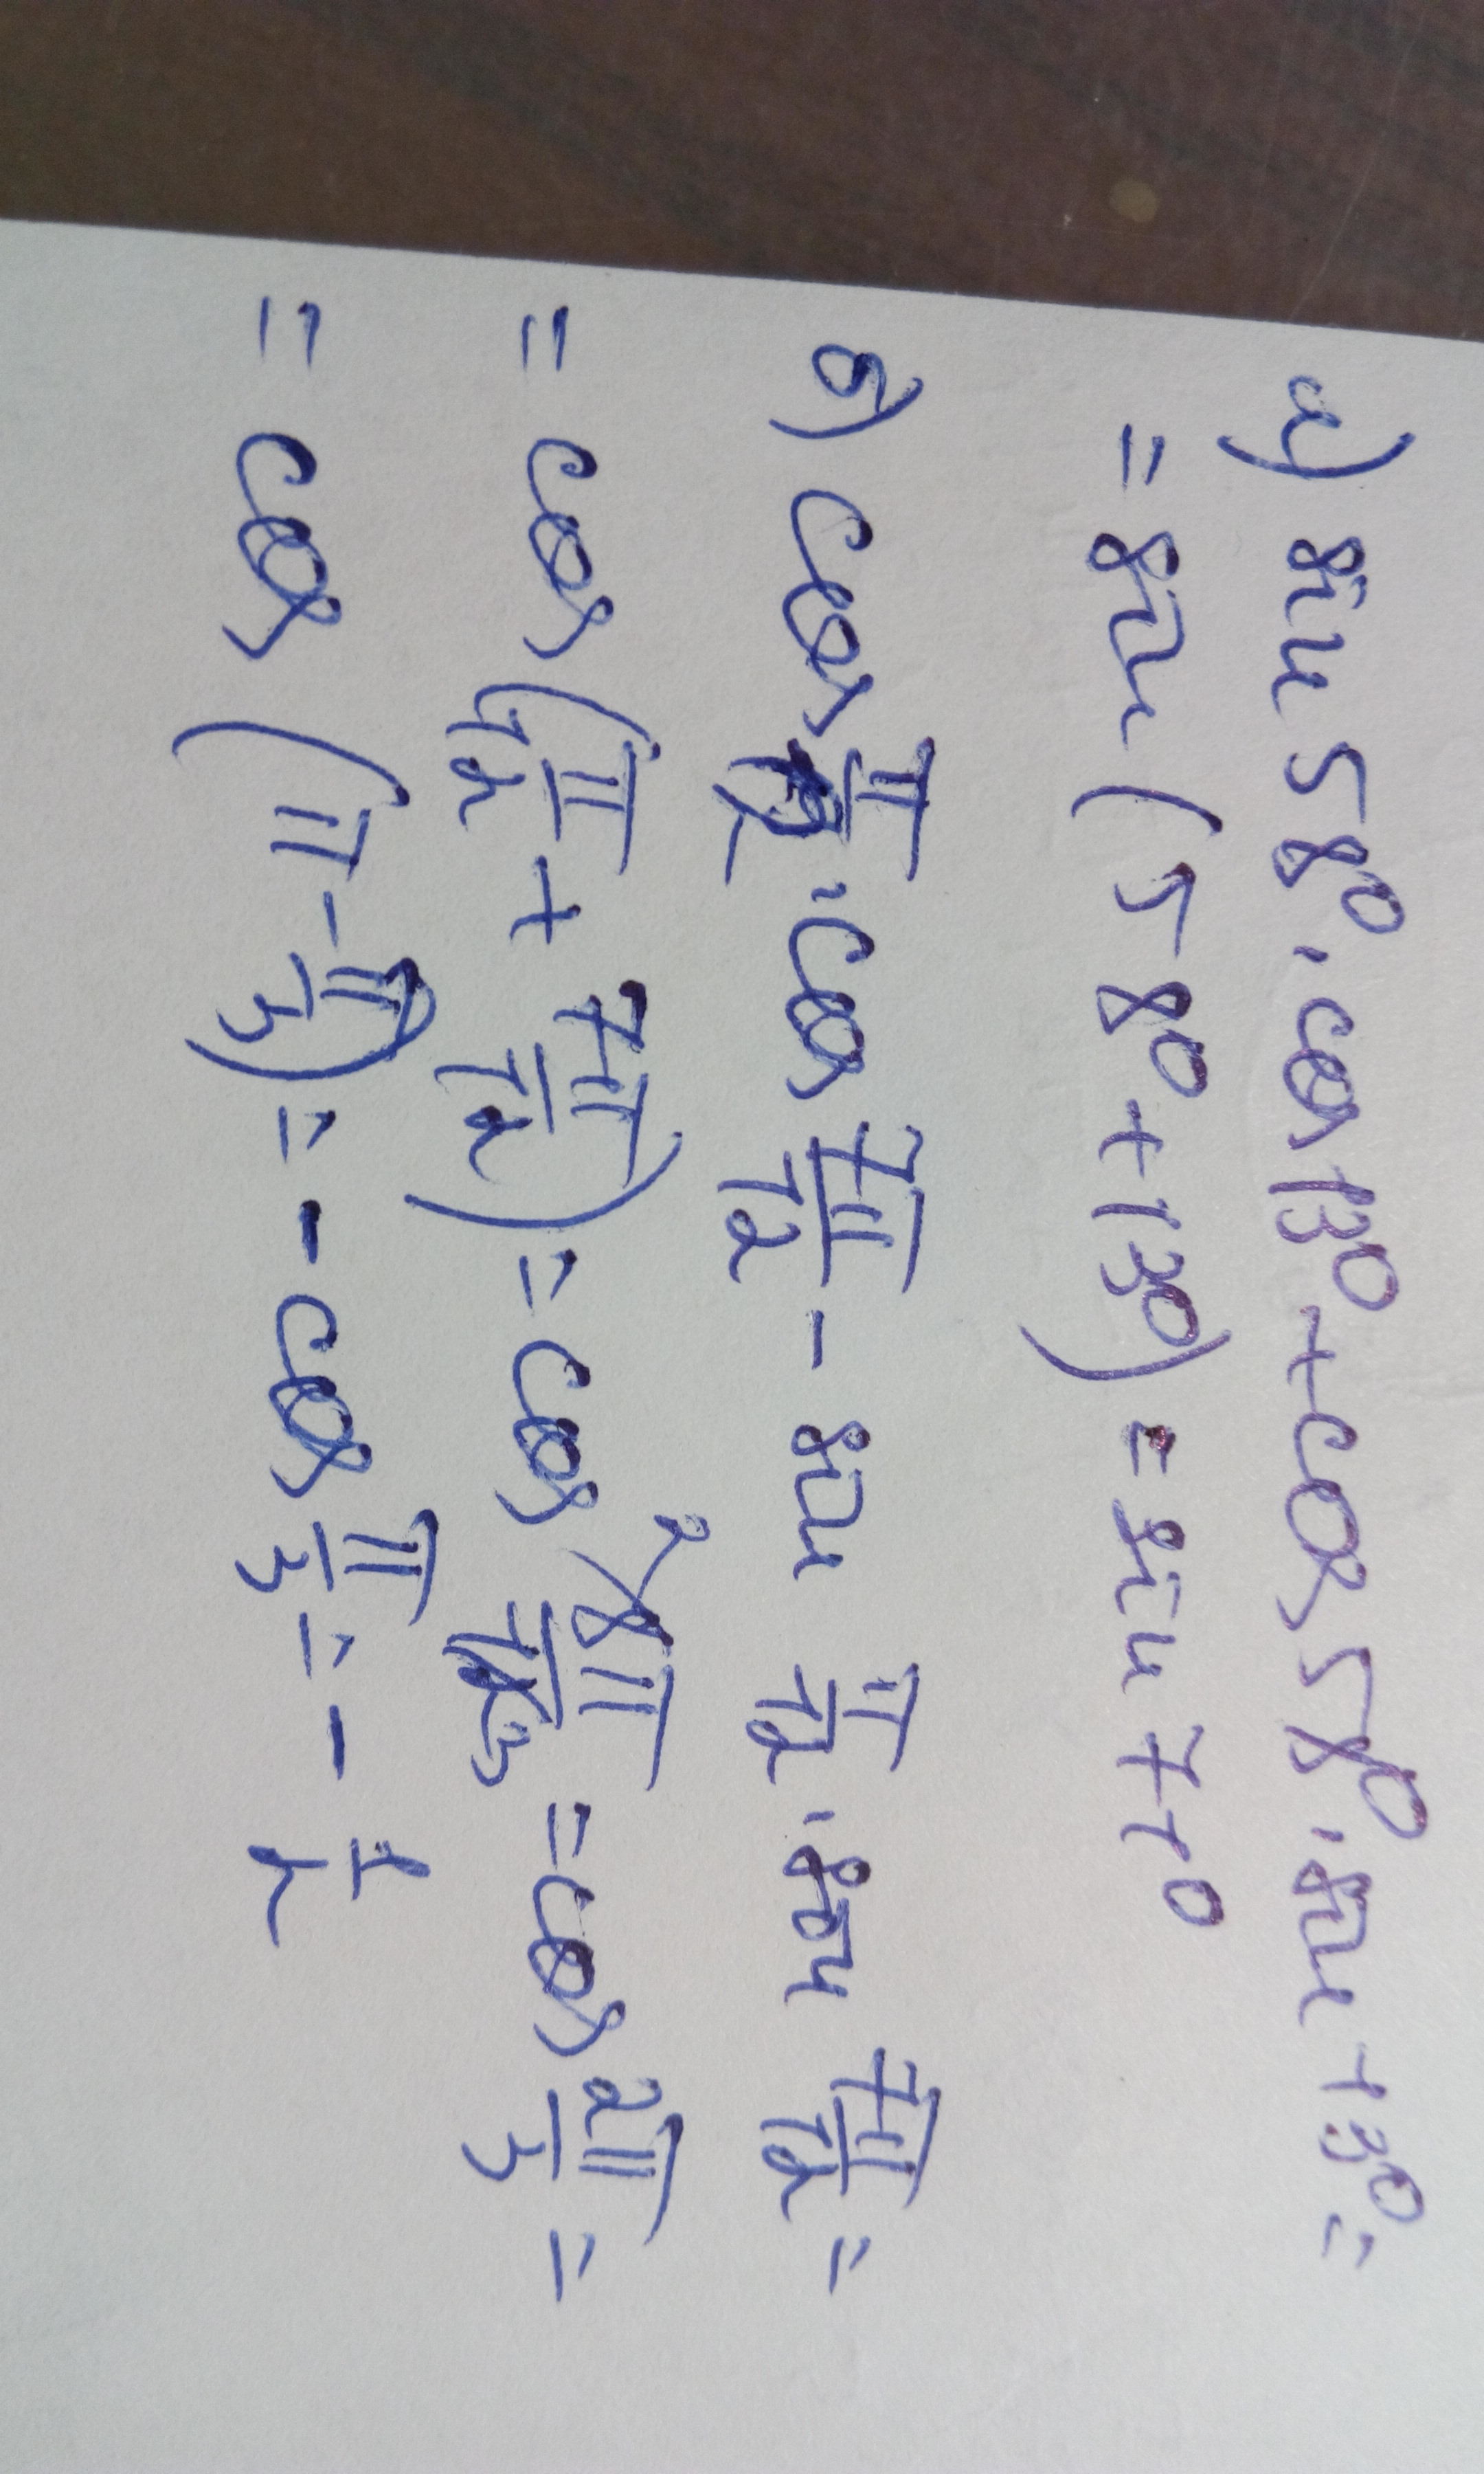 а) sin 58°·cos 13° + cos 58°·sin 13° =
= sin (58° + 13°) = sin 71°
б) cos π/12 · cos 7π/12 - sin π/12 · sin 7π/12 =
= cos (π/12 + 7π/12) = cos 8π/12 = cos 2π/3 =
= cos (π - π/3) = - cos π/3 = - 1/2